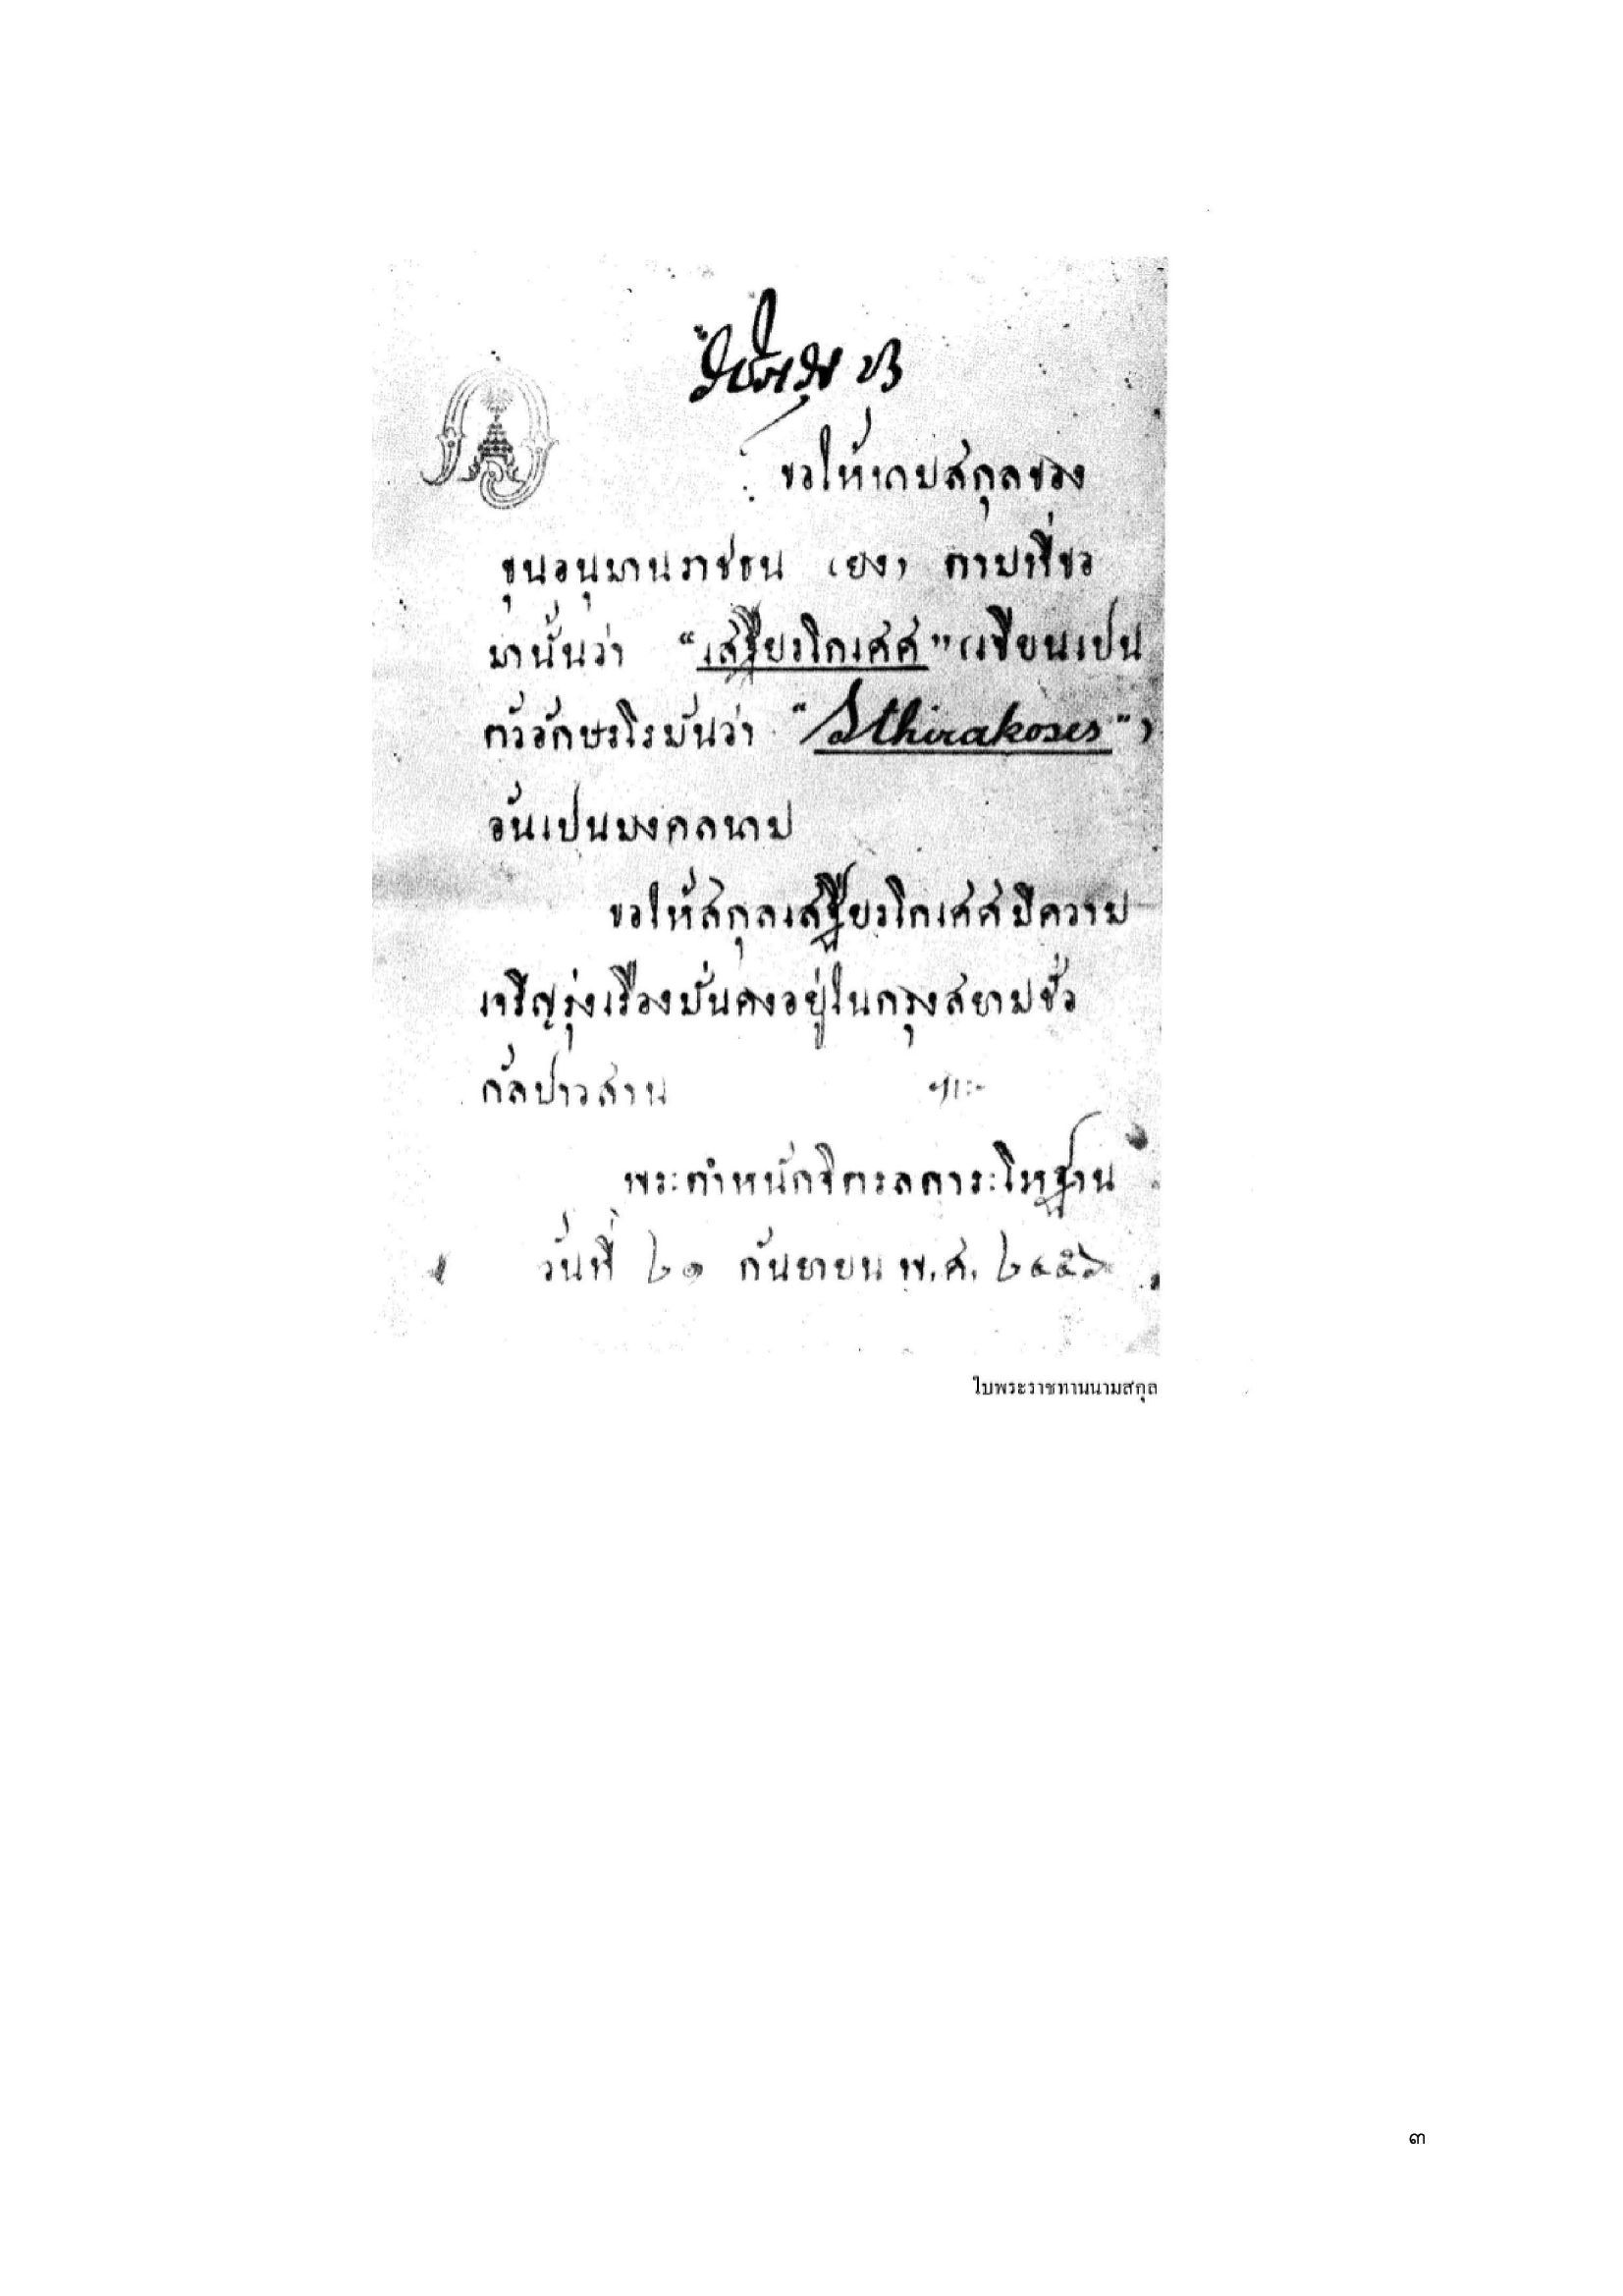 ขอให้นามสกุลของ
ขุนอนุมานราชธน (ยง) ตามที่ขอ
มานั้นว่า “เสฐียรโกเศศ” (เขียนเปน
ตัวอักษรโรมันว่า “Sthirakoses”)
อันเปนมงคลนาม
ขอให้สกุลเสฐียรโกเศศมีความ
เจริญรุ่งเรืองมั่นคงอยู่ในกรุงสยามชั่ว
กัลปาวสาน
พระตำหนักจิตรลดาระโหฐาน
วันที่ ๒๑ กันยายน พ.ศ. ๒๔๕๖
ใบพระราชทานนามสกุล
๓